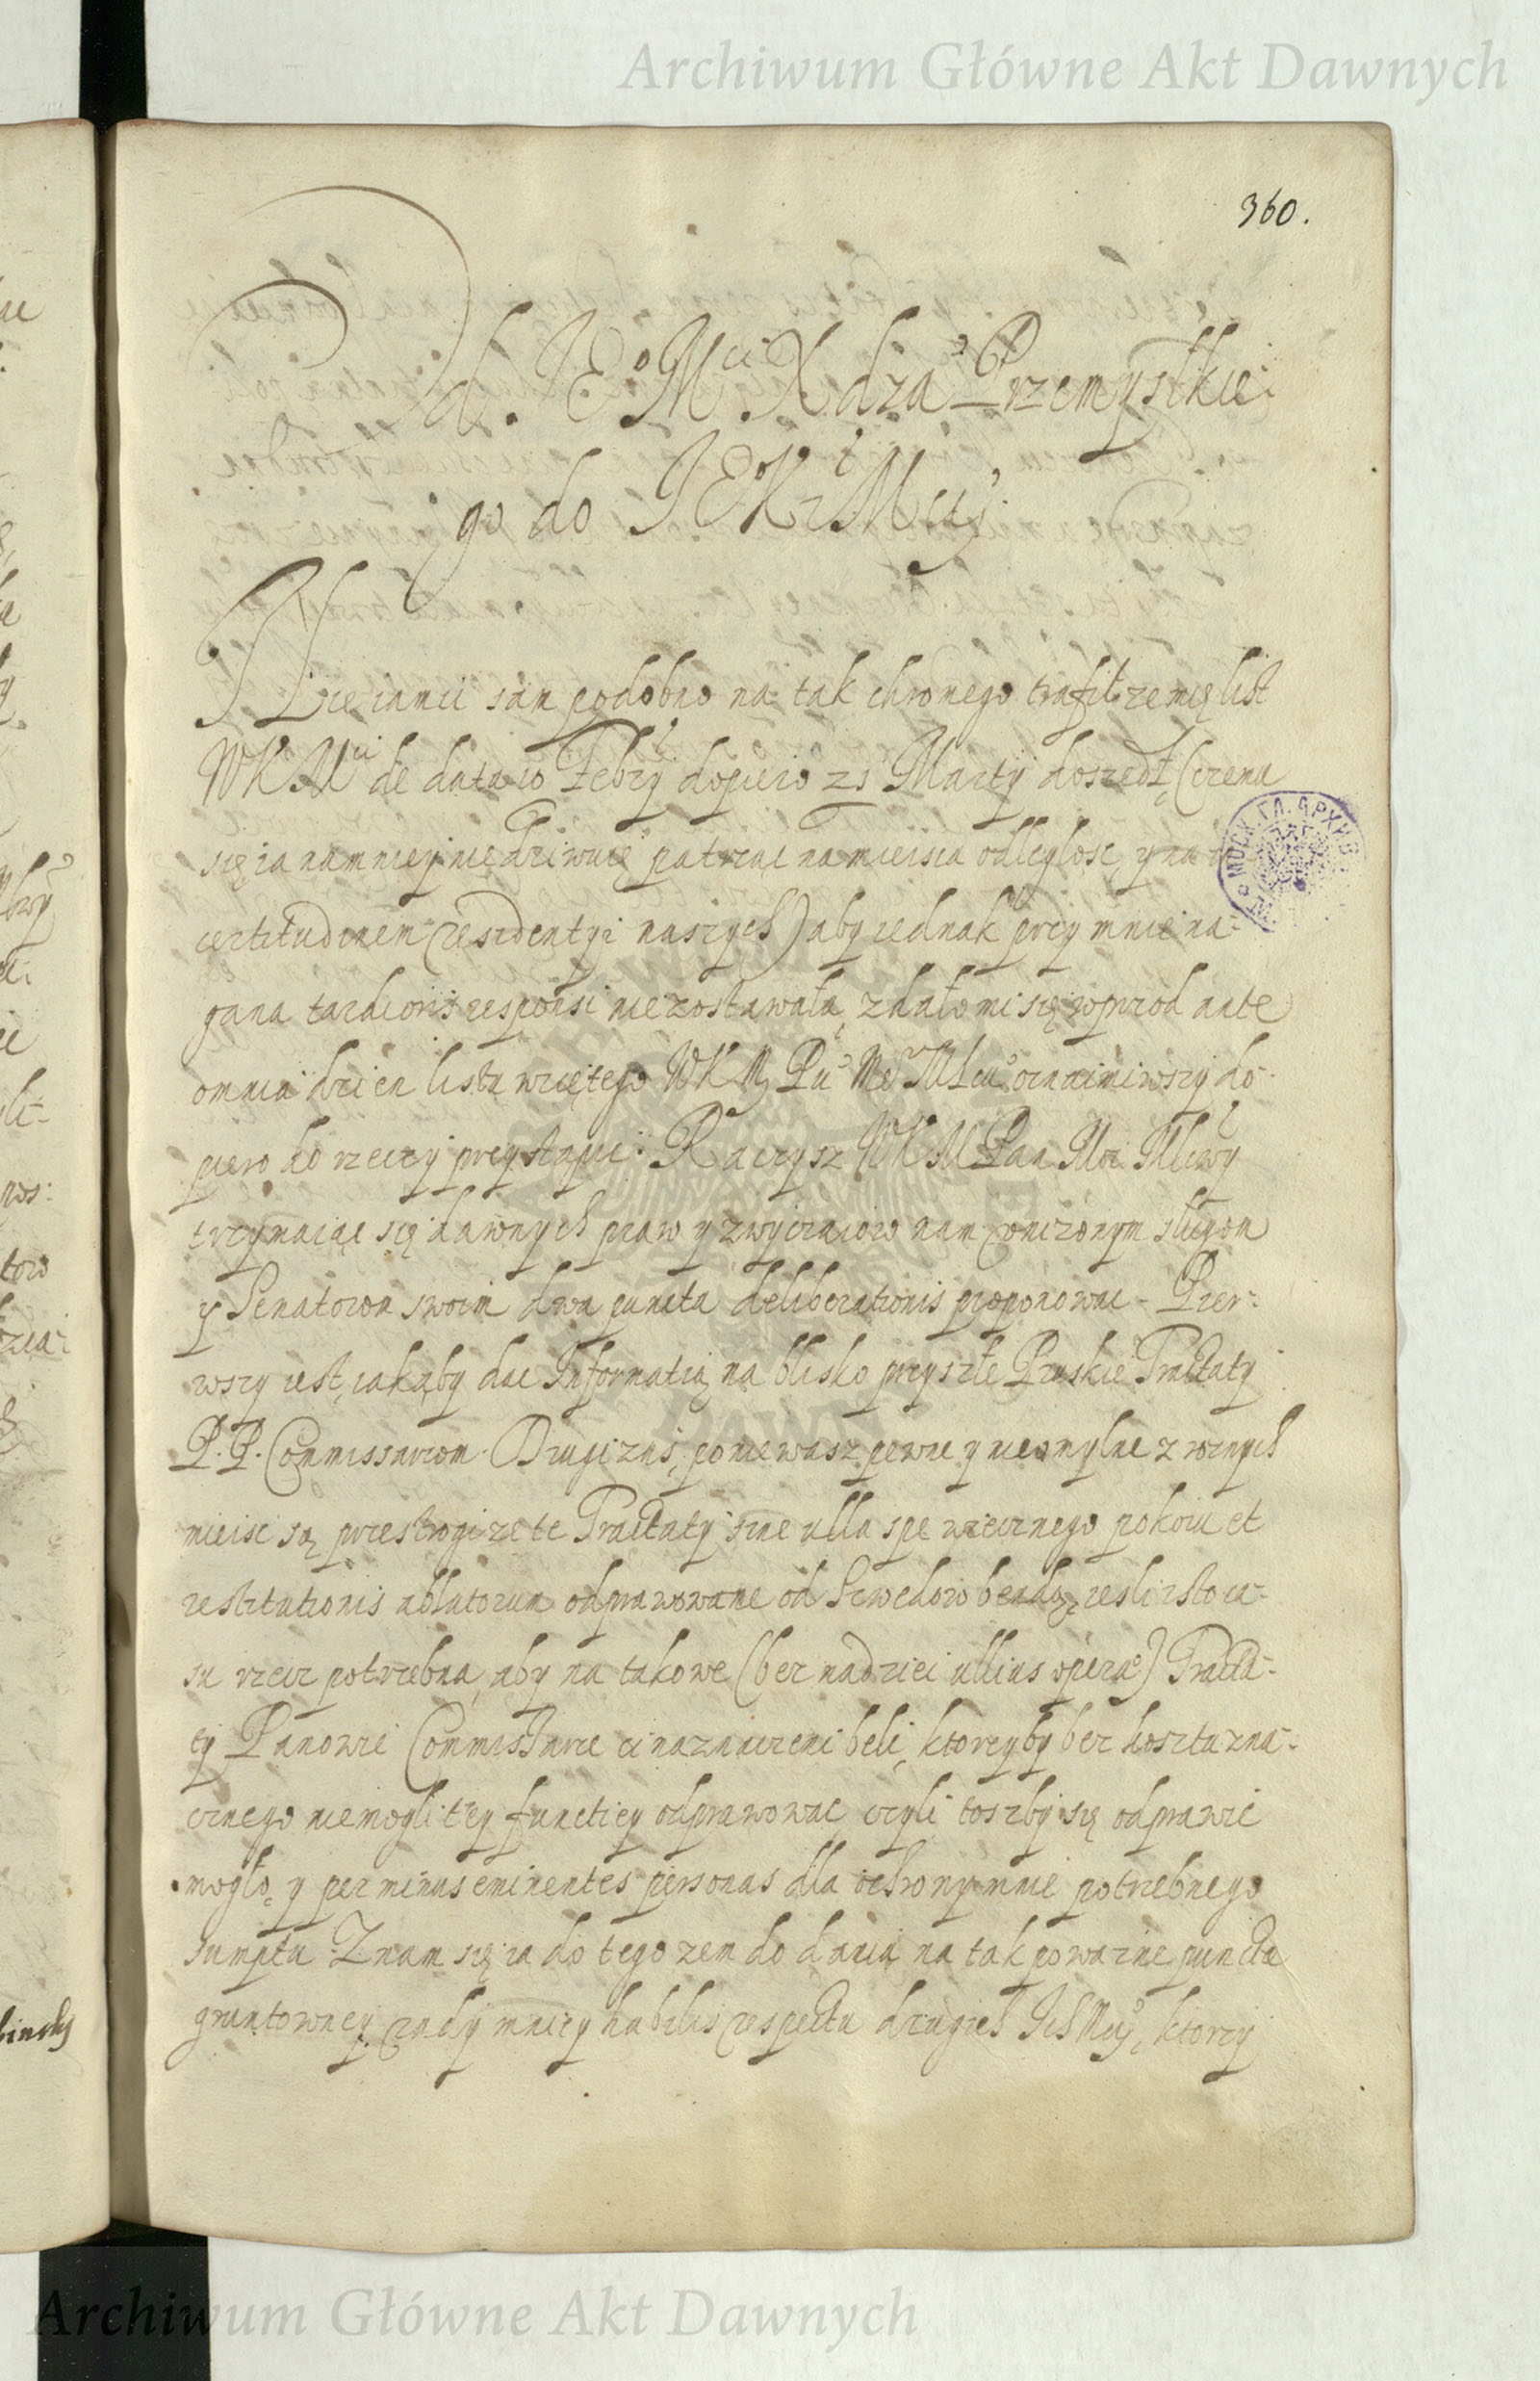 Archiwum Główne Akt Dawnych
360.
Od JEo Mci Xdza Przemyskie:
go do JEKr Mci
Że iamci sam podobno na tak chronego trafił ze mię list
WKMci de data 10 Febrij dopiero 21 Martij doszedł, (czemu
się ia namniey nie dziwuię patrząc na mieisca odległosc, y na
certitudinem residentyi naszych) aby iednak przy mnie na-
gana tardioris responsi nie zostawała, zdało mi się wprzod ante
omnia dzien listu wziętego WKM Pu Me Mlcu oznaimiwszy do-
piero do rzeczy przystąpic. Raczysz WKM Pan Moi Mlciwy
trzymaiąc się dawnych praw y zwyczaiow nam unizonym sługom
y Senatorom swoim dwa puncta deliberationis proponowac - Pier-
wszy iest, iakąby dac Informatią na blisko przyszłe Pruskie Tractaty
P. P. Commissariom. Drugi zas, poniewasz pewne y nieomylne z roznych
mieisc są przestrogi ze te Tractaty sine ulla spe wiecznego pokoiu et
restitutionis ablatorum odprawowane od Szwedow bendą, iesli isto ca-
su rzecz potrzebna, aby na takowe (bez nadziei ullius operae) Tracta-
ty Panowie Commissarze ci naznaczeni beli, ktorzyby bez kosztu zna-
cznego niemogli tey functiey odprawowac czyli toszby się odprawic
mogło, y per minus eminentes personas dla ochrony mnie potrzebnego
sumptu. Znam się ia do tego zem do dania na tak powazne puncta
gruntowney rady mniey habilis respectu drugich IchMci, ktorzy
Archiwum Główne Akt Dawnych